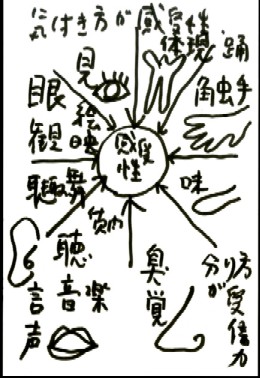 気付き方が感受性
体現 踊
見
眼
角虫手
絵
観 映
感受
性
聴
味
聴
臭覚
分り方が受信力
音楽
言
声